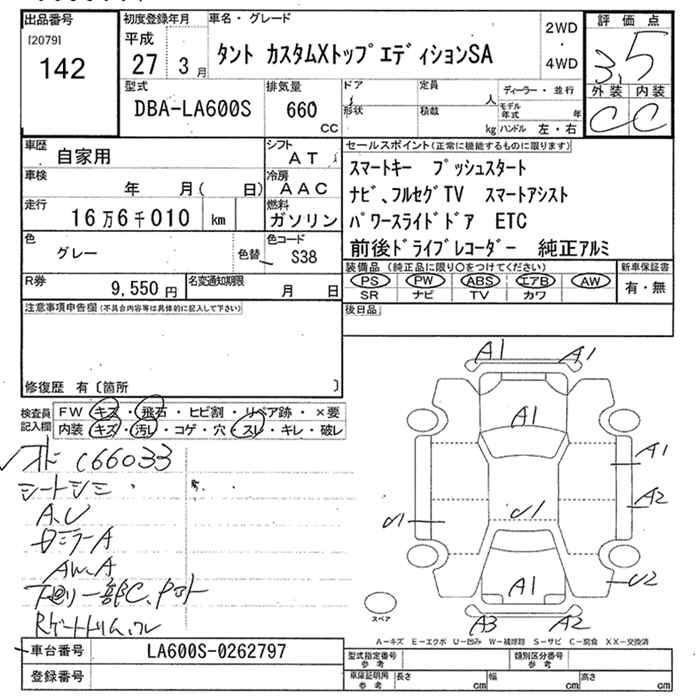 出品番号
[2079]
142
初度登録年月
平成
27 3 月
車名・グレード
タント カスタムXトップエディションSA
2WD
・
4WD
評価点
3.5
外装 内装
C C
型式
DBA-LA600S
排気量
660
CC
ドア
形状
定員
人
積載
kg
ディーラー・並行
モデル年式 年
ハンドル 左・右
車歴
自家用
シフト
AT
車検
年 月( 日)
冷房
AAC
走行
16万6千010 km
燃料
ガソリン
色
グレー
色替
色コード
S38
R券
9,550 円
名変通知期限
月 日
セールスポイント(正常に機能するものに限ります)
スマートキー プッシュスタート
ナビ、フルセグTV スマートアシスト
パワースライドドア ETC
前後ドライブレコーダー 純正アルミ
装備品(純正品に限り○をつけてください)
PS PW ABS エアB AW
SR ナビ TV カワ
新車保証書
有・無
後日品
注意事項申告欄(不具合内容等は具体的に記入して下さい)
修復歴 有〔箇所 〕
検査員記入欄
FW キズ・飛石・ヒビ割・リペア跡・×要
内装 キズ・汚レ・コゲ・穴・スレ・キレ・破レ
C66033
シートシミ
A.U
ミラーA
AW.A
下回り一部C、
A1
A1
A1
A1
A2
U1
U1
U2
A1
A3
A2
スペア
A-キズ E-エクボ U-凹み W-補修跡 S-サビ C-腐食 XX-交換済
車台番号
LA600S-0262797
登録番号
型式指定番号
参考
類別区分番号
参考
車庫証明用
参考
長さ cm
幅 cm
高さ cm